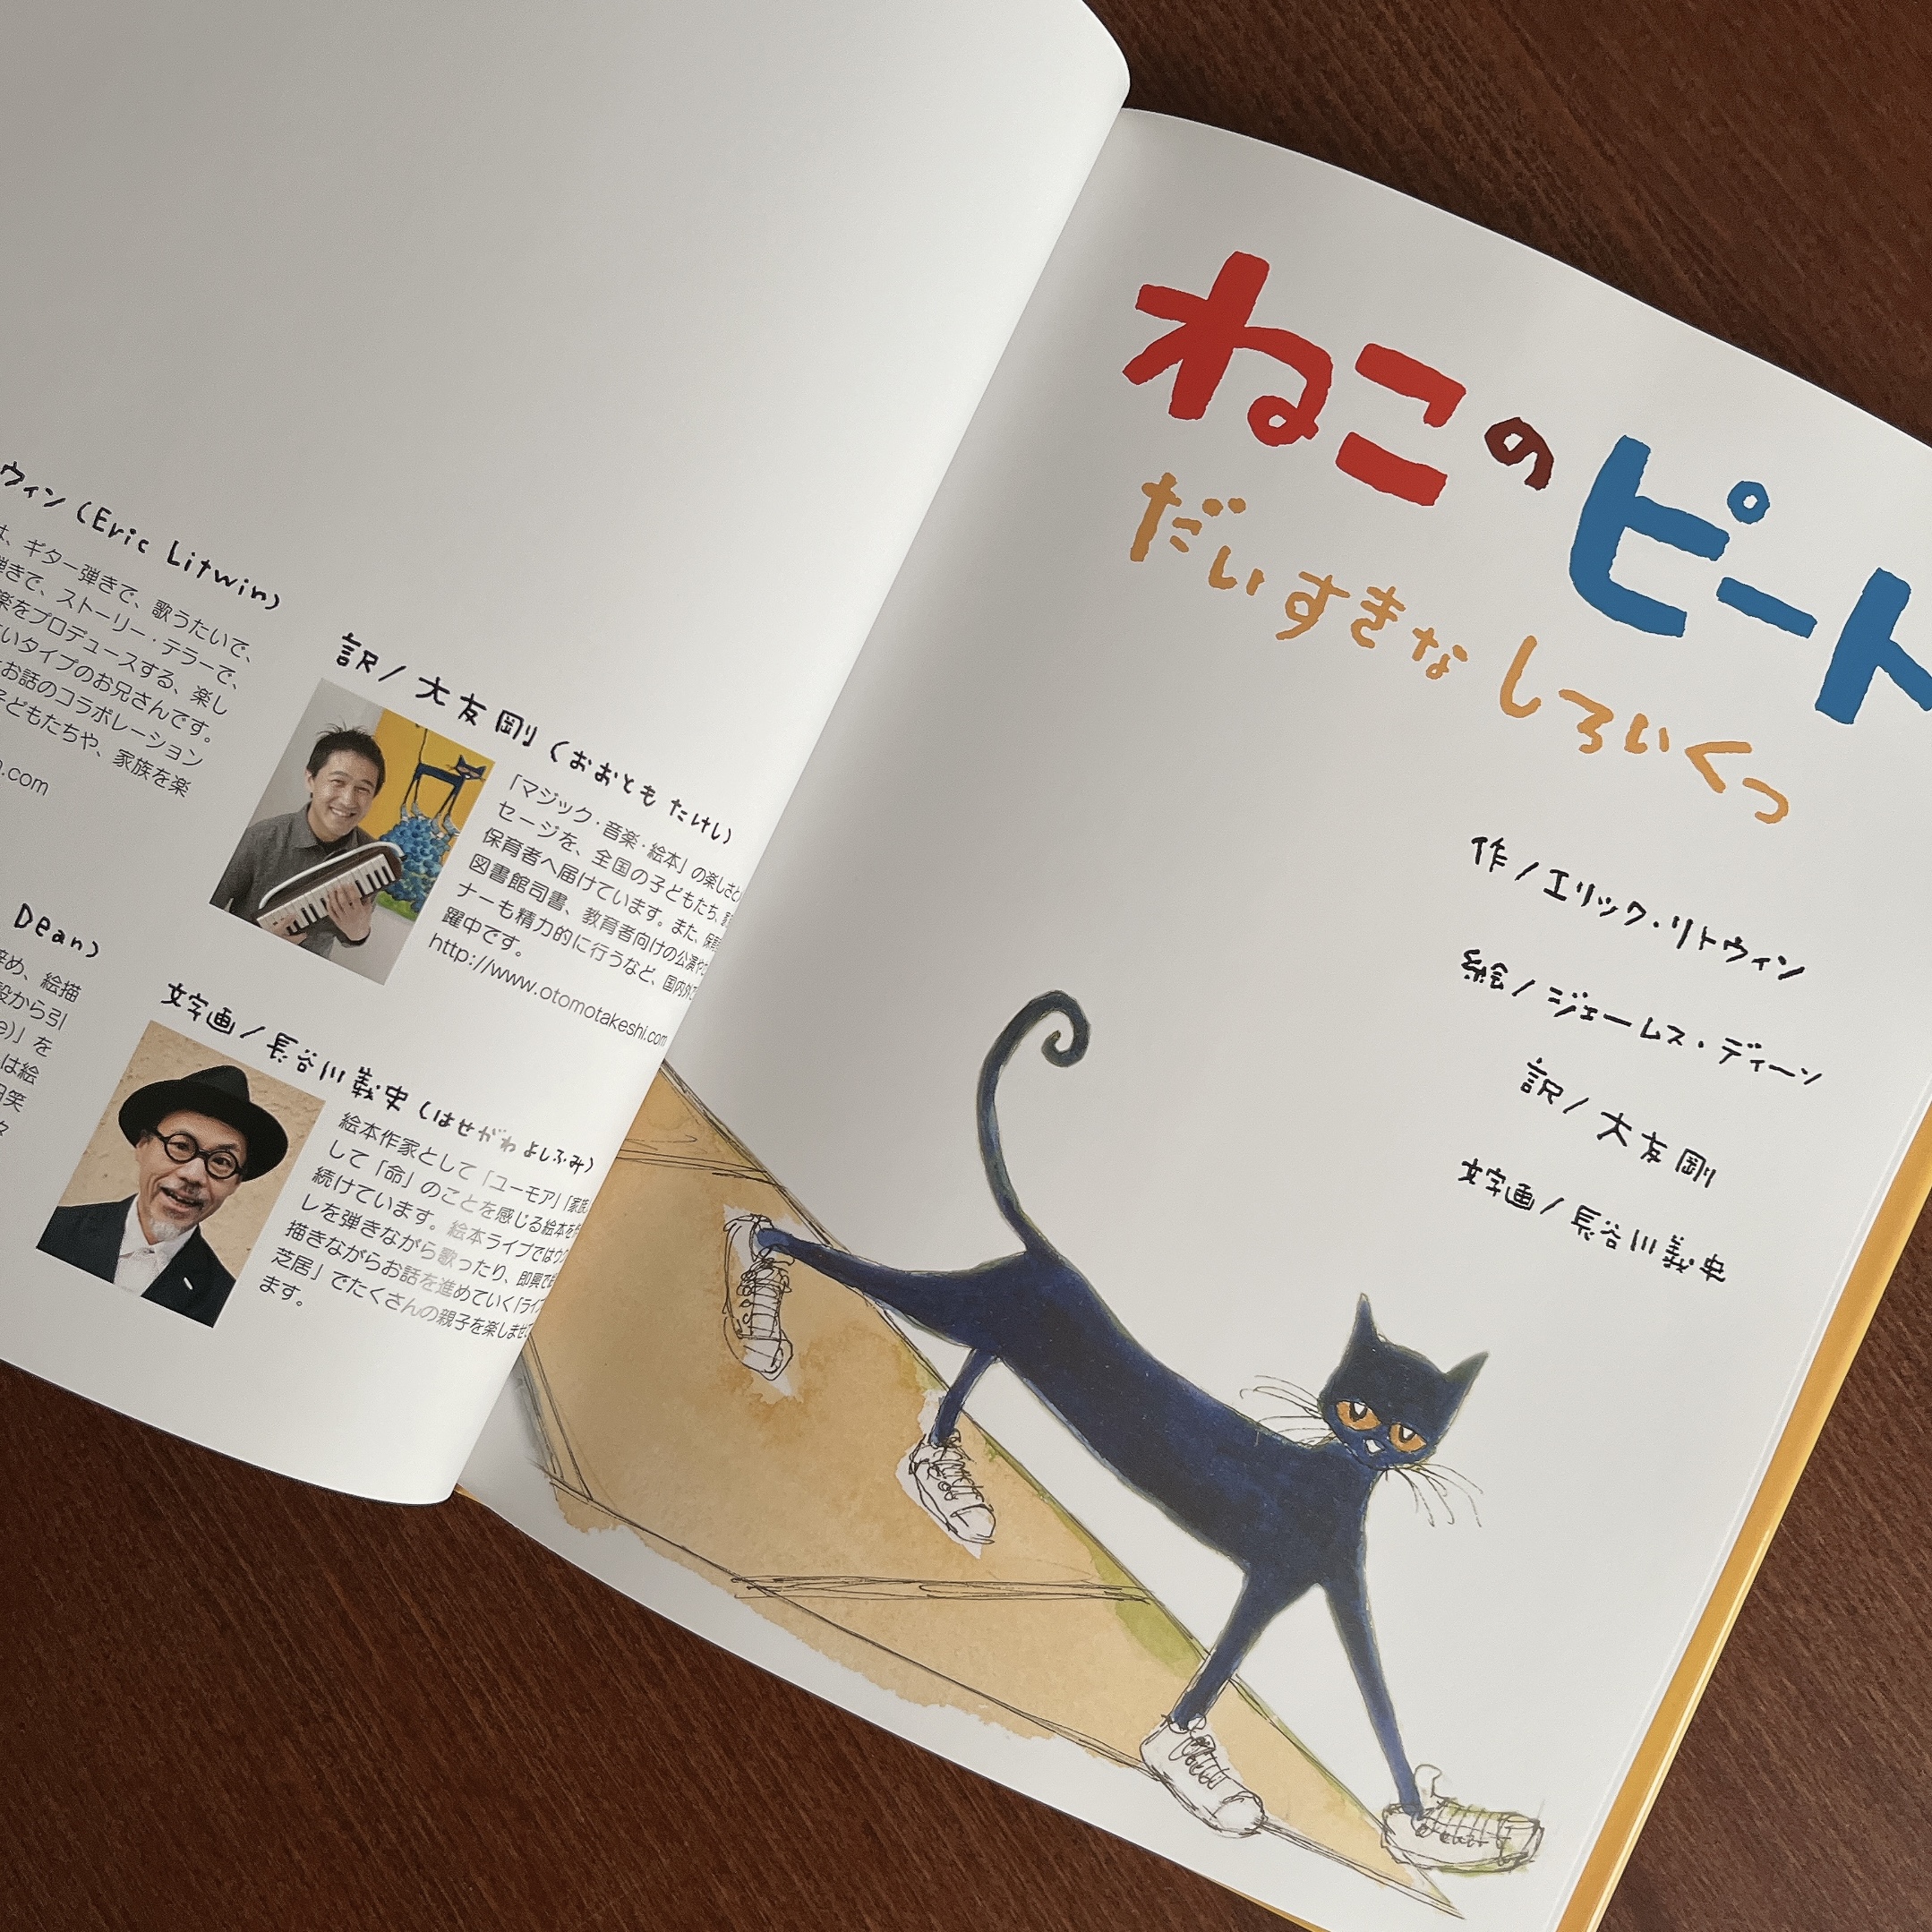 ウィン (Eric Litwin)
は、ギター弾きで、歌うたいで、
弾きで、ストーリー・テラーで、
楽をプロデュースする、楽し
いタイプのお兄さんです。
お話のコラボレーション
子どもたちや、家族を楽
.com
Dean)
辞め、絵描
から引
)」を
は絵
笑
々
訳/大友剛(おおとも たけし)
「マジック・音楽・絵本」の楽しさと
セージを、全国の子どもたち、
保育者へ届けています。また、保育
図書館司書、教育者向けの公演や
ナーも精力的に行うなど、国内外で
躍中です。
http://www.otomotakeshi.com
文字画/長谷川義史(はせがわ よしふみ)
絵本作家として「ユーモア」「家族
して「命」のことを感じる絵本を
続けています。絵本ライブではウク
レを弾きながら歌ったり、即興で
描きながらお話を進めていく「ライブ
芝居」でたくさんの親子を楽しませ
ます。
ねこのピート
だいすきなしろいくつ
作/エリック・リトウィン
絵/ジェームス・ディーン
訳/大友剛
文字画/長谷川義史